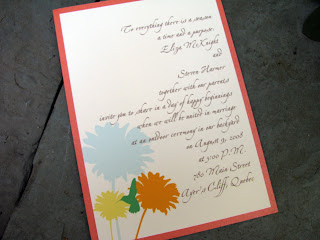 To everything there is a season
a time and a purpose.
Eliza McKnight
and
Steven Harmer
together with our parents
invite you to share in a day of happy beginnings
when we will be united in marriage
at an outdoor ceremony in our backyard
on August 9, 2008
at 5:00 P.M.
780 Main Street
Ayer's Cliff, Quebec